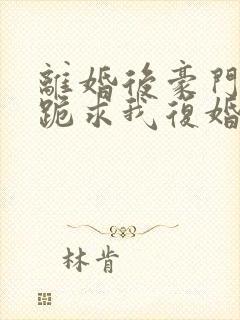 離婚後豪門
跪求我復婚
林肯